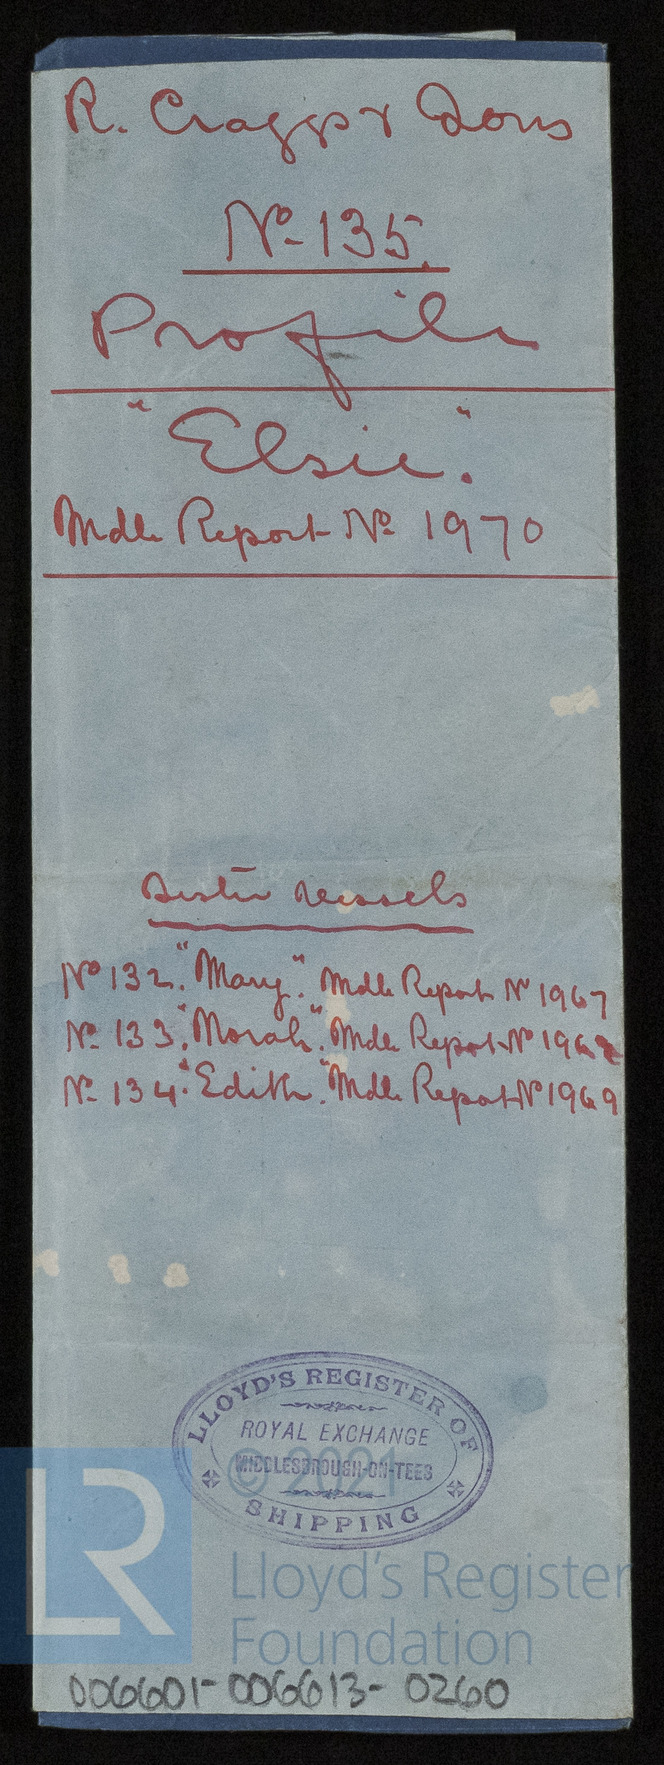 R. Craggs & Sons
No. 135.
Profile
"Elsie".
Mdb. Report No 1970
Sister Vessels
No 132. "Mary". Mdb. Report No 1967
No. 133. "Norah". Mdb. Report No 1968
No. 134. "Edith". Mdb. Report No 1969
LLOYD'S REGISTER OF
ROYAL EXCHANGE
MIDDLESBROUGH-ON-TEES
SHIPPING
© 2021
LR
Lloyd's Register
Foundation
006601-006613-0260